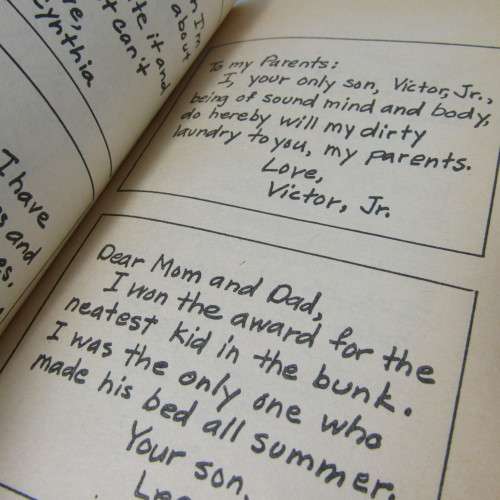 about
it and
can't
Cynthia
I have
and
To my Parents:
I, your only son, Victor, Jr.,
being of sound mind and body,
do hereby will my dirty
laundry to you, my parents.
Love,
Victor, Jr.
Dear Mom and Dad,
I won the award for the
neatest kid in the bunk.
I was the only one who
made his bed all summer.
Your son,